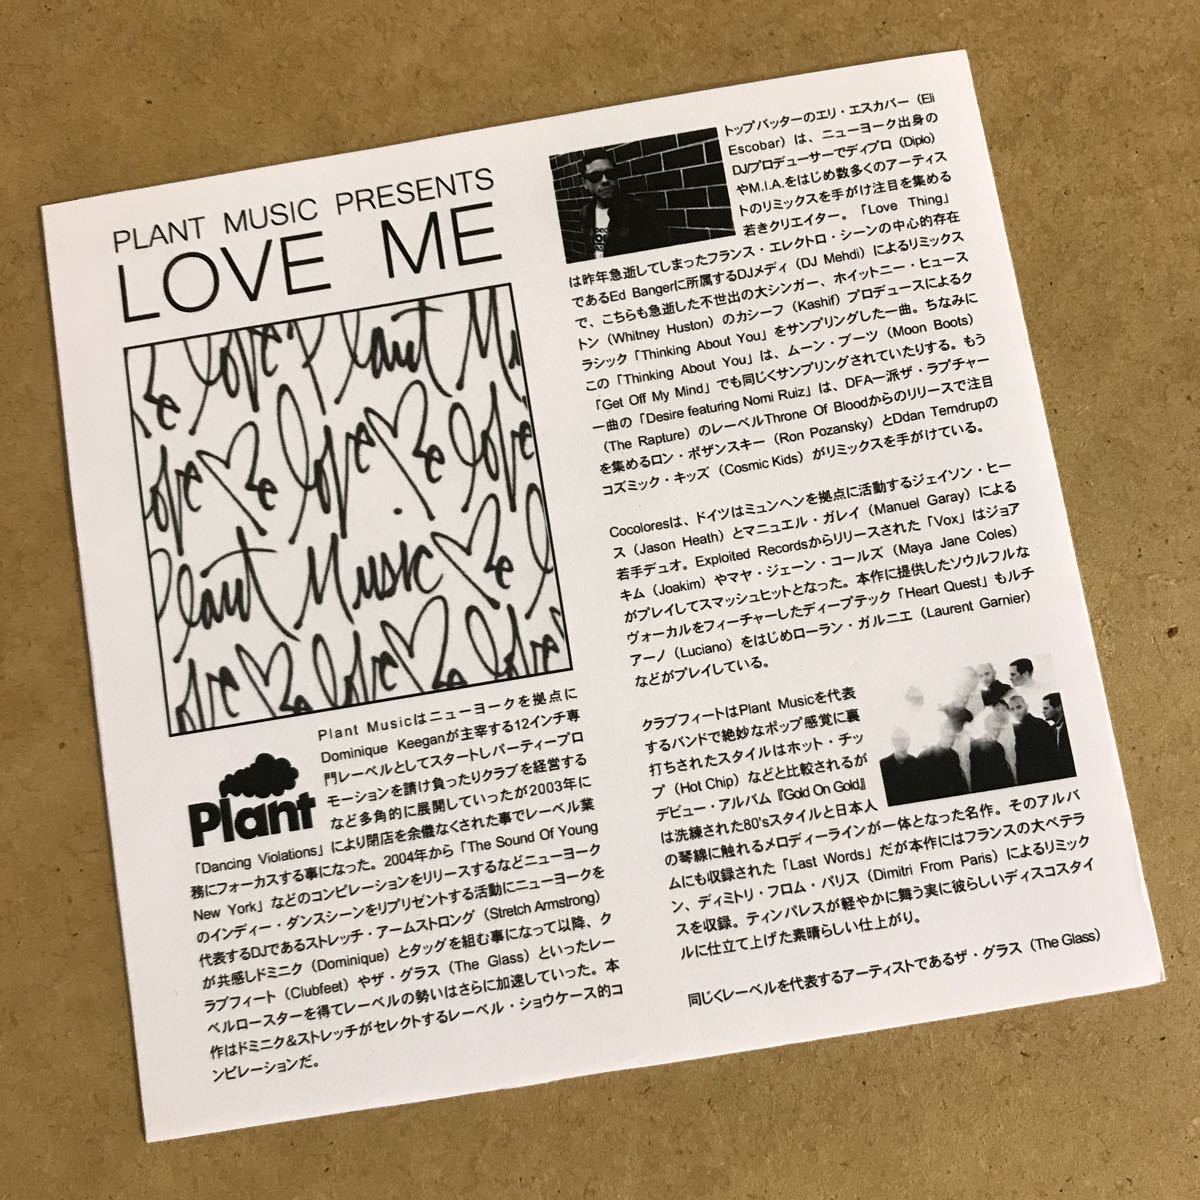 PLANT MUSIC PRESENTS
LOVE ME
me love Plant Mu
ove me love me
Plant Music me
ove me love me love
Plant
Plant Musicはニューヨークを拠点に
Dominique Keeganが主宰する12インチ専
門レーベルとしてスタートしパーティープロ
モーションを請け負ったりクラブを経営する
など多角的に展開していったが2003年に
「Dancing Violations」により閉店を余儀なくされた事でレーベル業
務にフォーカスする事になった。2004年から「The Sound Of Young
New York」などのコンピレーションをリリースするなどニューヨーク
のインディー・ダンスシーンをリプリゼントする活動にニューヨークを
代表するDJであるストレッチ・アームストロング（Stretch Armstrong）
が共感しドミニク（Dominique）とタッグを組む事になって以降、ク
ラブフィート（Clubfeet）やザ・グラス（The Glass）といったレー
ベルロースターを得てレーベルの勢いはさらに加速していった。本
作はドミニク＆ストレッチがセレクトするレーベル・ショウケース的コ
ンピレーションだ。
トップバッターのエリ・エスカバー（Eli
Escobar）は、ニューヨーク出身の
DJ/プロデューサーでディプロ（Diplo）
やM.I.A.をはじめ数多くのアーティス
トのリミックスを手がけ注目を集める
若きクリエイター。「Love Thing」
は昨年急逝してしまったフランス・エレクトロ・シーンの中心的存在
であるEd Bangerに所属するDJメディ（DJ Mehdi）によるリミックス
で、こちらも急逝した不世出の大シンガー、ホイットニー・ヒュース
トン（Whitney Huston）のカシーフ（Kashif）プロデュースによるク
ラシック「Thinking About You」をサンプリングした一曲。ちなみに
この「Thinking About You」は、ムーン・ブーツ（Moon Boots）
「Get Off My Mind」でも同じくサンプリングされていたりする。もう
一曲の「Desire featuring Nomi Ruiz」は、DFA一派ザ・ラプチャー
（The Rapture）のレーベルThrone Of Bloodからのリリースで注目
を集めるロン・ポザンスキー（Ron Pozansky）とDdan Terndrupの
コズミック・キッズ（Cosmic Kids）がリミックスを手がけている。
Cocoloresは、ドイツはミュンヘンを拠点に活動するジェイソン・ヒー
ス（Jason Heath）とマニュエル・ガレイ（Manuel Garay）による
若手デュオ。Exploited Recordsからリリースされた「Vox」はジョア
キム（Joakim）やマヤ・ジェーン・コールズ（Maya Jane Coles）
がプレイしてスマッシュヒットとなった。本作に提供したソウルフルな
ヴォーカルをフィーチャーしたディープテック「Heart Quest」もルチ
アーノ（Luciano）をはじめローラン・ガルニエ（Laurent Garnier）
などがプレイしている。
クラブフィートはPlant Musicを代表
するバンドで絶妙なポップ感覚に裏
打ちされたスタイルはホット・チッ
プ（Hot Chip）などと比較されるが
デビュー・アルバム『Gold On Gold』
は洗練された80'sスタイルと日本人
の琴線に触れるメロディーラインが一体となった名作。そのアルバ
ムにも収録された「Last Words」だが本作にはフランスの大ベテラ
ン、ディミトリ・フロム・パリス（Dimitri From Paris）によるリミック
スを収録。ティンバレスが軽やかに舞う実に彼らしいディスコスタイ
ルに仕立て上げた素晴らしい仕上がり。
同じくレーベルを代表するアーティストであるザ・グラス（The Glass）